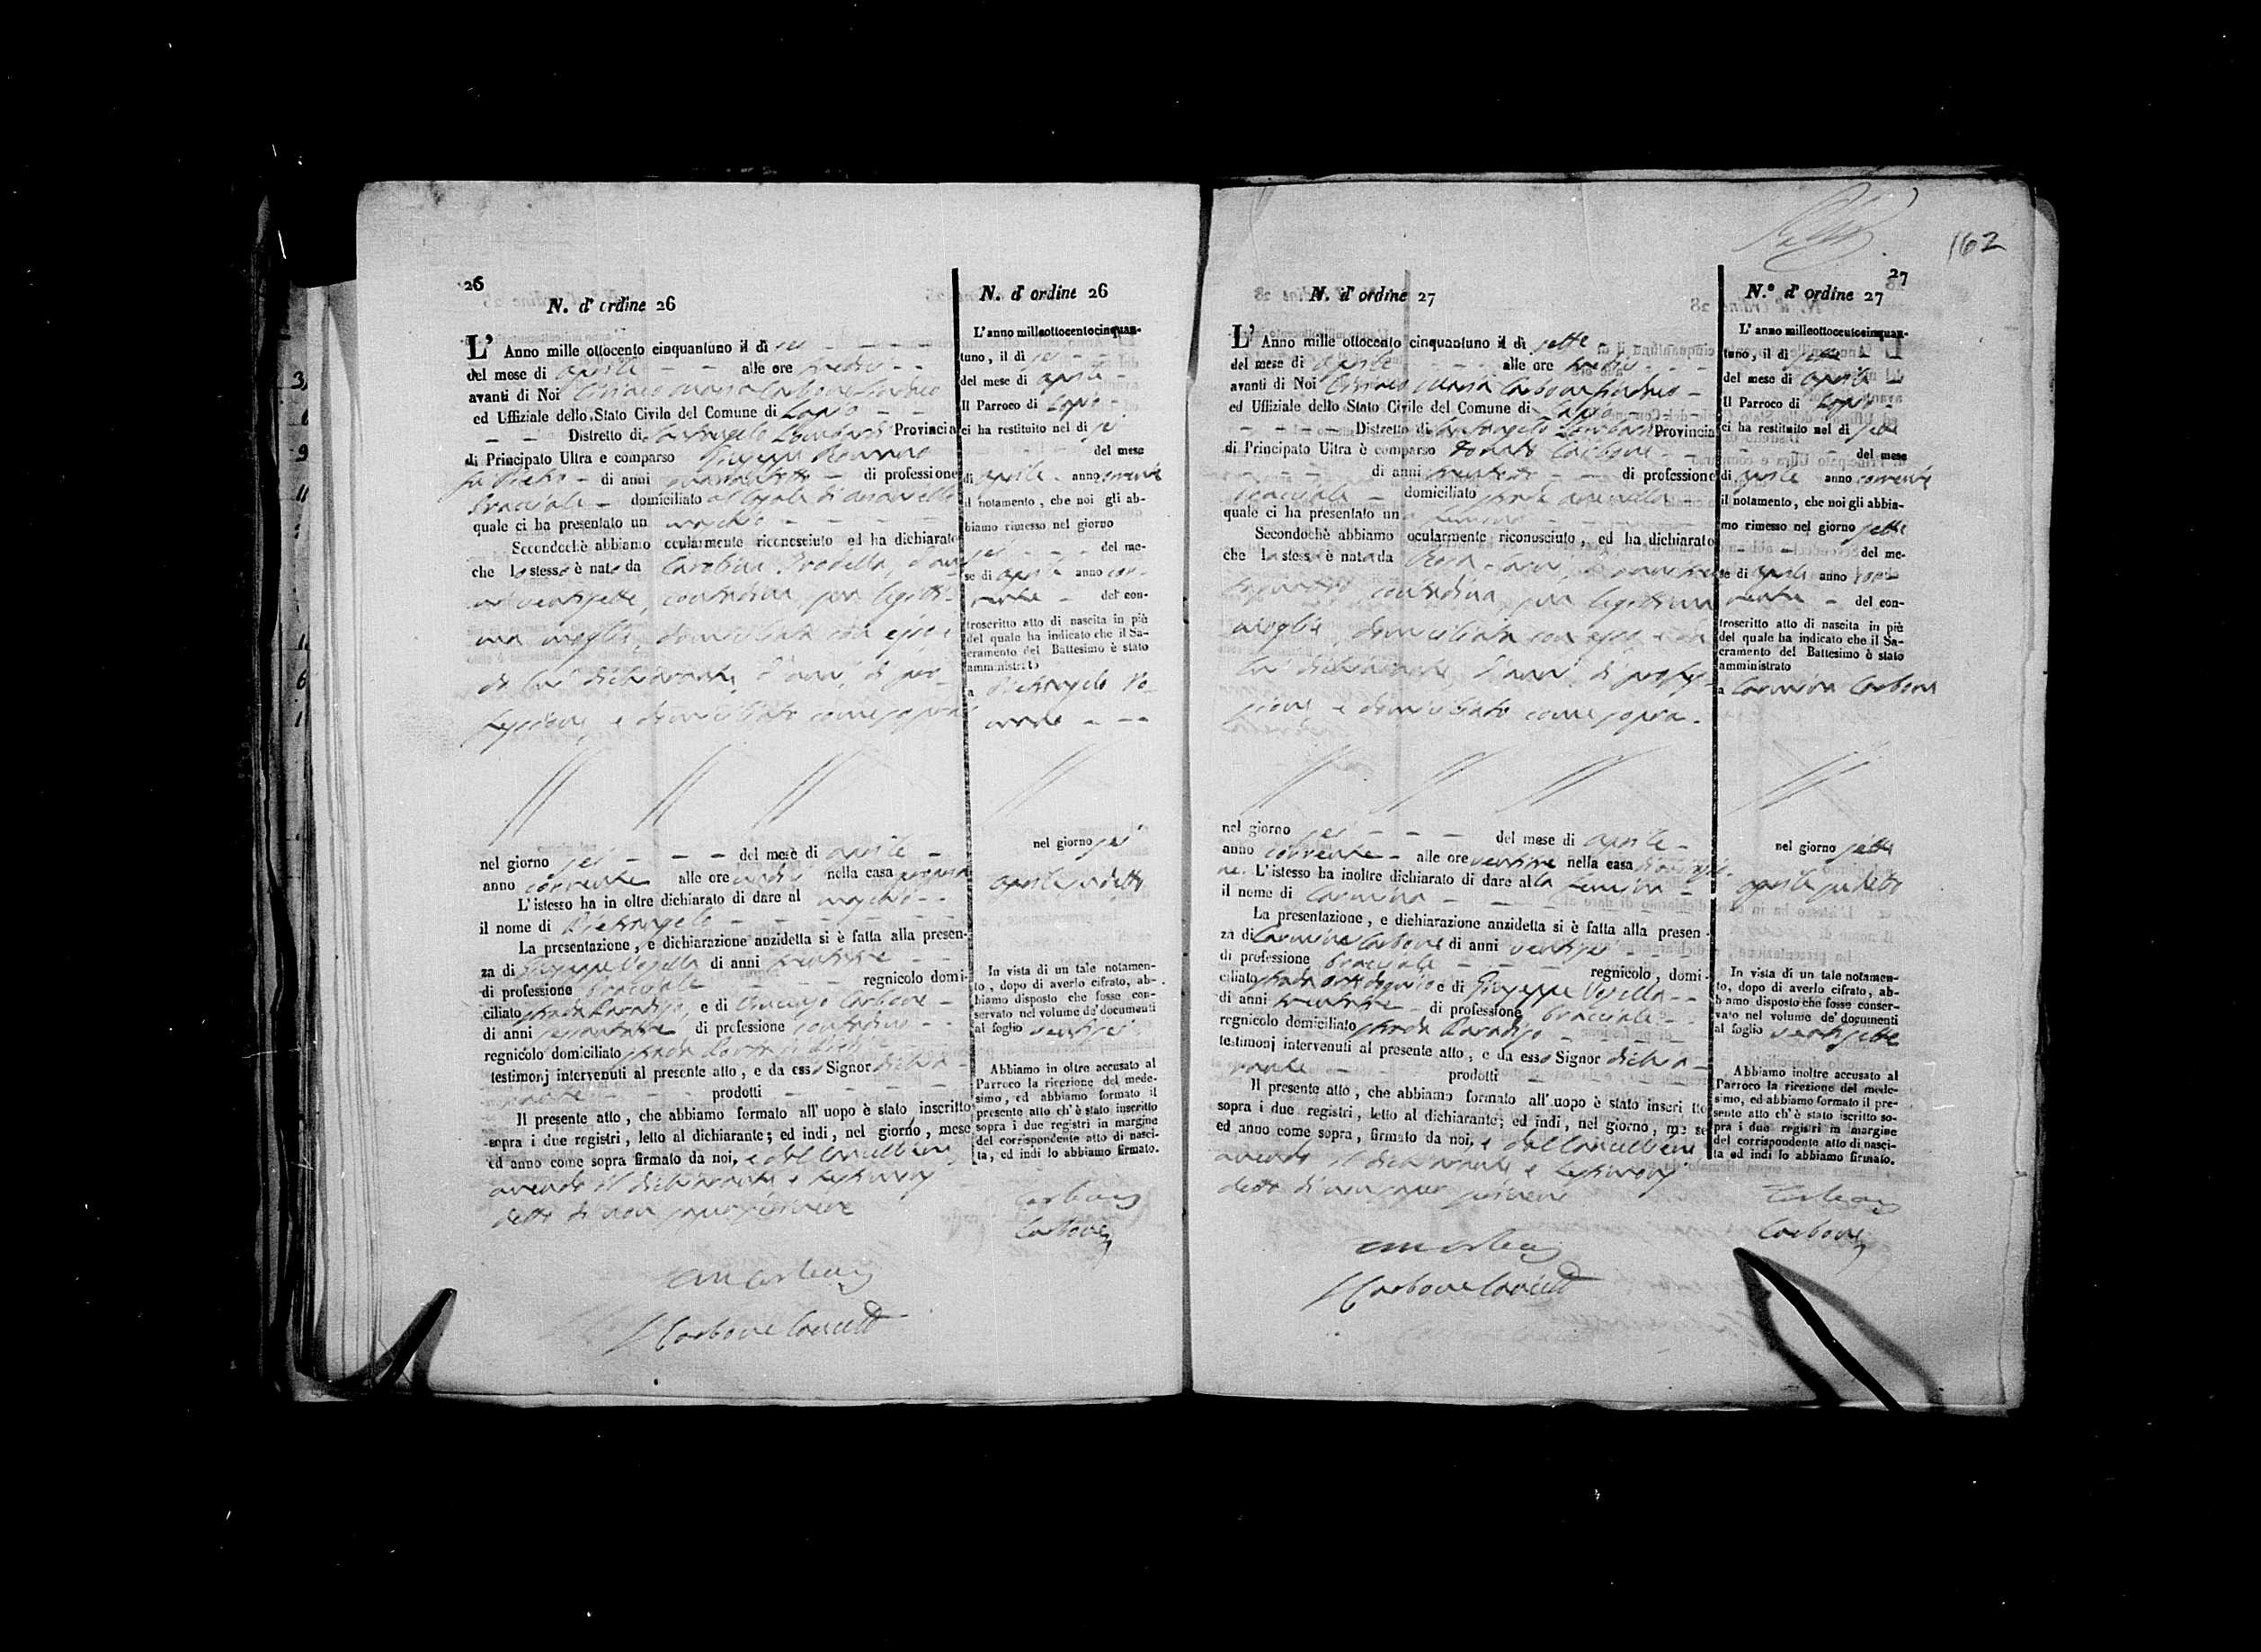 26
N. d' ordine 26
L' Anno mille ottocento cinquantuno il dì sei
del mese di aprile alle ore tredici
avanti di Noi Ciriaco Maria Carbone Sindaco
ed Uffiziale dello Stato Civile del Comune di Lapio
Distretto di S. Angelo Lombardi Provincia
di Principato Ultra e comparso Giuseppe Romano
fu Pietro di anni quarantotto di professione
bracciale domiciliato
quale ci ha presentato un maschio
Secondochè abbiamo ocularmente riconosciuto ed ha dichiarato
che lo stesso è nato da Carolina d'an
ni ventisette, contadina sua legitti-
ma moglie, domiciliata con esso, e
da lui dichiarante, d'anni, di pro-
fessione, e domiciliato come sopra
nel giorno sei del mese di aprile
anno corrente alle ore undici nella casa propria
L'istesso ha in oltre dichiarato di dare al maschio
il nome di Pietrangelo
La presentazione, e dichiarazione anzidetta si è fatta alla presen-
za di Giuseppe Vesella di anni trentatre
di professione bracciale regnicolo domi-
ciliato strada Paradiso, e di Vincenzo Carbone
di anni sessantatre di professione contadino
regnicolo domiciliato strada
testimonj intervenuti al presente atto, e da esso Signor dichia-
rante prodotti
Il presente atto, che abbiamo formato all' uopo è stato inscritto
sopra i due registri, letto al dichiarante; ed indi, nel giorno, mese
ed anno come sopra firmato da noi, e dal Cancelliere
avendo il dichiarante e testimonj
detto di non saper scrivere
Carbone Cancell
N. d' ordine 26
L'anno milleottocentocinquan-
tuno, il dì sei
del mese di aprile
Il Parroco di Lapio
ci ha restituito nel dì sei
del mese
di aprile anno corrente
il notamento, che noi gli ab-
biamo rimesso nel giorno
sei del me-
se di aprile anno cor-
rente del con-
troscritto atto di nascita in piè
del quale ha indicato che il Sa-
cramento del Battesimo è stato
amministrato
a Pietrangelo Ro-
mano
nel giorno sei
aprile sudetto
In vista di un tale notamen-
to, dopo di averlo cifrato, ab-
biamo disposto che fosse con-
servato nel volume de' documenti
al foglio ventisei
Abbiamo in oltre accusato al
Parroco la ricezione del mede-
simo, ed abbiamo formato il
presente atto ch' è stato inscritto
sopra i due registri in margine
del corrispondente atto di nasci-
ta, ed indi lo abbiamo firmato.
Carbone
162
27
N. d' ordine 27
L' Anno mille ottocento cinquantuno il dì sette
del mese di aprile alle ore tredici
avanti di Noi Ciriaco Maria Carbone Sindaco
ed Uffiziale dello Stato Civile del Comune di Lapio
Distretto di S. Angelo Lombardi Provincia
di Principato Ultra è comparso Donato Carbone
di anni trentotto di professione
bracciale domiciliato strada
quale ci ha presentato un femina
Secondochè abbiamo ocularmente riconosciuto, ed ha dichiarato
che la stessa è nata da Rosa
contadina, sua legittima
moglie, domiciliata con esso, e da
lui dichiarante, d'anni, di profes-
sione e domiciliato come sopra.
nel giorno sei del mese di aprile
anno corrente alle ore ventitre nella casa
L'istesso ha inoltre dichiarato di dare alla femina
il nome di Carmina
La presentazione, e dichiarazione anzidetta si è fatta alla presen-
za di Carmine Carbone di anni ventisei
di professione bracciale regnicolo, domi-
ciliato strada e di Giuseppe Vesella
di anni trentatre di professione bracciale
regnicolo domiciliato strada Paradiso
testimonj intervenuti al presente atto, e da esso Signor dichia-
rante prodotti
Il presente atto, che abbiamo formato all' uopo è stato inscritto
sopra i due registri, letto al dichiarante; ed indi, nel giorno, mese
ed anno come sopra, firmato da noi, e dal Cancelliere
avendo il dichiarante e testimonj
detto di non saper scrivere
Carbone Cancell
N.° d' ordine 27
L' anno milleottocentocinquan-
tuno, il dì sette
del mese di aprile
Il Parroco di Lapio
ci ha restituito nel dì sette
del mese
di aprile anno corrente
il notamento, che noi gli abbia-
mo rimesso nel giorno sette
del me-
se di aprile anno cor-
rente del con-
troscritto atto di nascita in piè
del quale ha indicato che il Sa-
cramento del Battesimo è stato
amministrato
a Carmina Carbone
nel giorno sette
aprile sudetto
In vista di un tale notamen-
to, dopo di averlo cifrato, ab-
biamo disposto che fosse conser-
vato nel volume de' documenti
al foglio ventisette
Abbiamo inoltre accusato al
Parroco la ricezione del mede-
simo, ed abbiamo formato il pre-
sente atto ch' è stato iscritto so-
pra i due registri in margine
del corrispondente atto di nasci-
ta ed indi lo abbiamo firmato.
Carbone